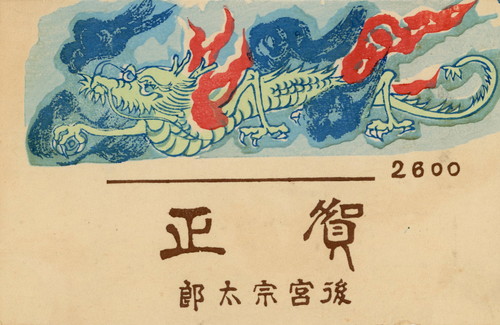 2600
賀正
後宮宗太郎